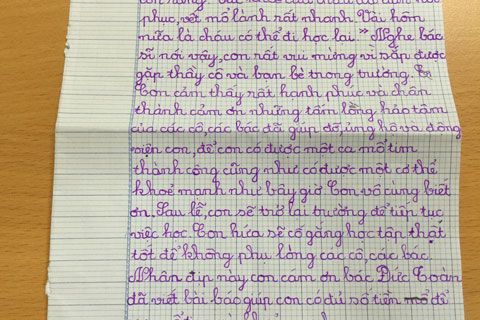 phục, vết mổ lành rất nhanh. Vài hôm
nữa là cháu có thể đi học lại" Nghe bác
sĩ nói vậy, con rất vui mừng vì sắp được
gặp thầy cô và bạn bè trong trường.
Con cảm thấy rất hạnh phúc và chân
thành cảm ơn những tấm lòng hảo tâm
của các cô, các bác đã giúp đỡ, ủng hộ và động
viện con, để con có được một ca mổ tim
thành công cũng như có được một cơ thể
khoẻ mạnh như bây giờ. Con vô cùng biết
ơn. Sau lễ, con sẽ trở lại trường để tiếp tục
việc học. Con hứa sẽ cố gắng học tập thật
tốt để không phụ lòng các cô, các bác.
Nhân dịp này con cảm ơn bác Đức Toàn
đã viết bài báo giúp con có đủ số tiền mổ để